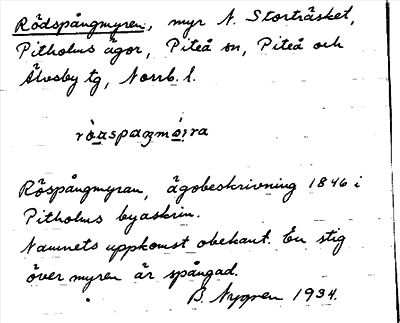 Rödspångmyren, myr N. Storträsket,
Pitholms ägor, Piteå sn, Piteå och
Älvsby tg, Norrb. l.
Röspångmyran, ägobeskrivning 1846 i
Pitholms byaskrin.
Namnets uppkomst obekant. En stig
över myren är spångad.
B. Nygren 1934.